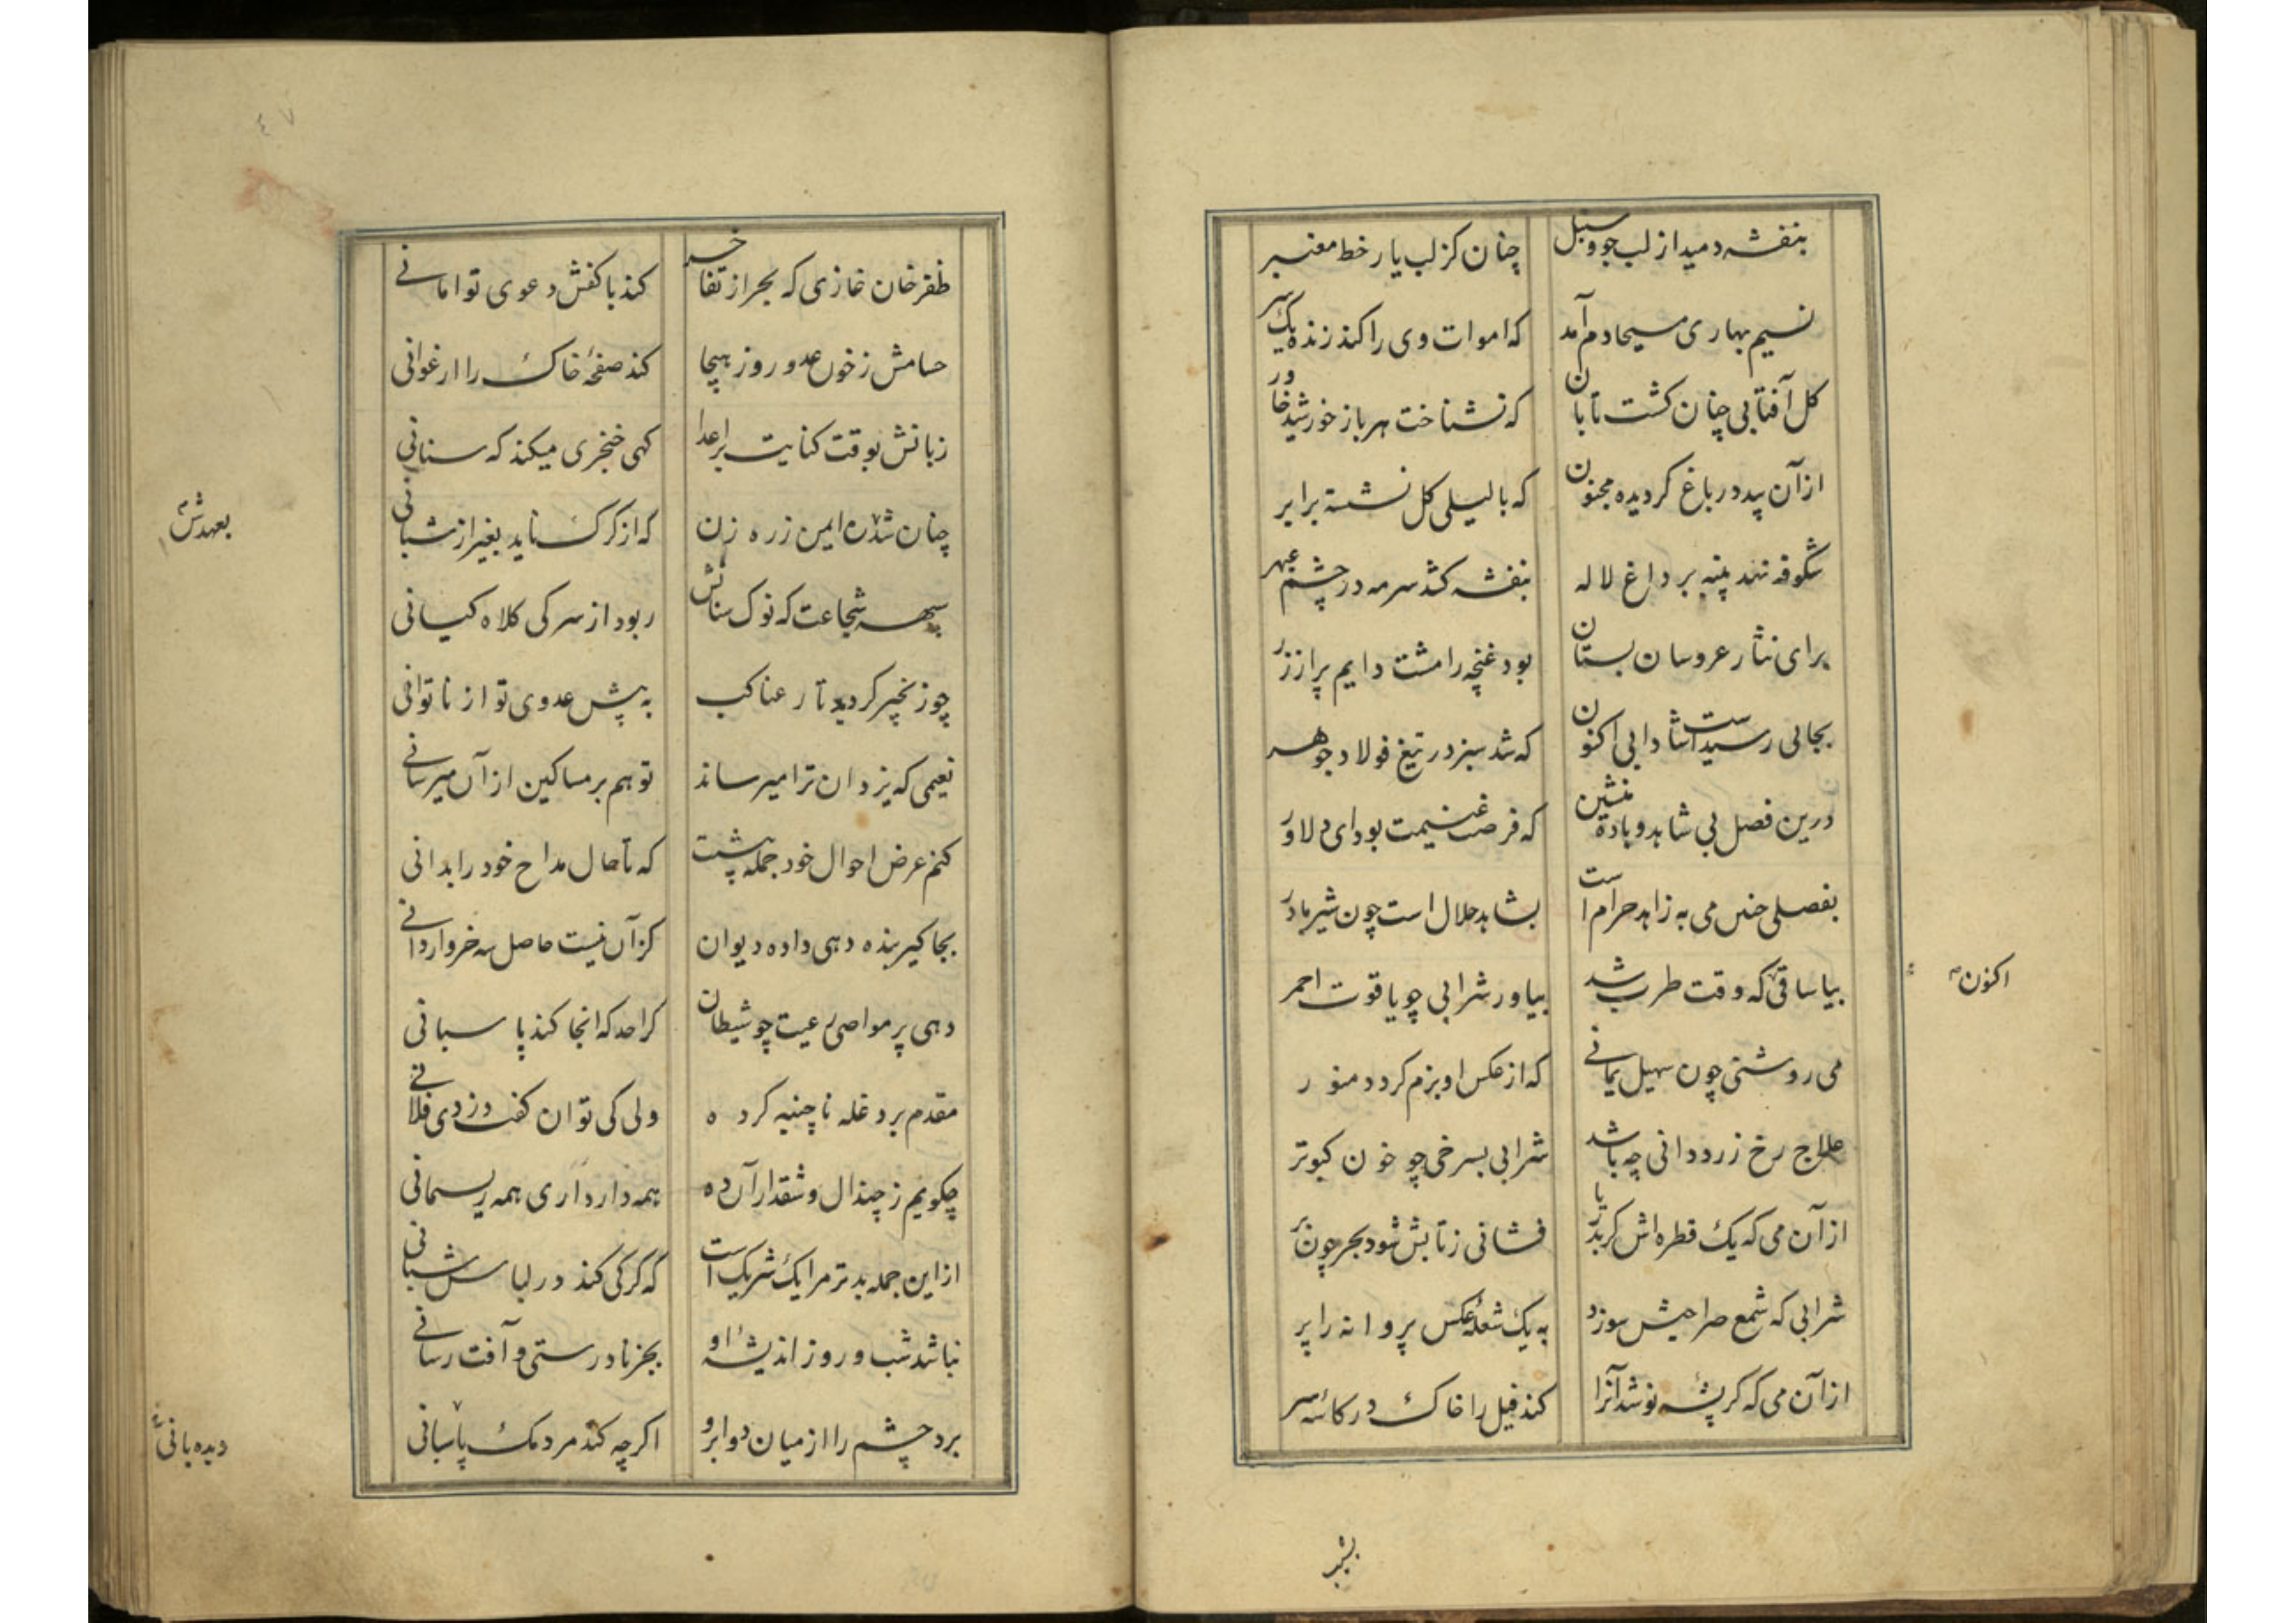 بنفشه دمید از لب جو و سنبل چنان کز لب یار خط معنبر
نسیم بهاری مسیحا دم آمد که اموات وی را کند زنده یکسر
کل آفتابی چنان کشت تابان که نشناخت هر باز خورشید خاور
از آن بید در باغ کردیده مجنون که با لیلی کل نشسته برابر
شکوفه نهد پنبه بر داغ لاله بنفشه کشد سرمه در چشم عبهر
برای نثار عروسان بستان بود غنچه را مشت دایم پر از زر
بجائی رسیدست شادابی اکنون که شد سبز در تیغ فولاد جوهر
درین فصل بی شاهد و باده منشین که فرصت غنیمت بود ای دلاور
بفصلی چنین می به زاهد حرام است بشاهد حلال است چون شیر مادر
بیا ساقی که وقت طرب شد بیاور شرابی چو یاقوت احمر
اکنون
می روشنی چون سهیل یمانی که از عکس او بزم کردد منور
علاج رخ زرد دانی چه باشد شرابی بسرخی چو خون کبوتر
از آن می که یک قطره اش کر بدریا فشانی ز تابش شود بحر چون بر
شرابی که شمع صراحیش سوزد به یک شعله عکس پروانه را پر
از آن می که کر پشه نوشد آنرا کند فیل را خاک در کاسه سر
بشبـ
٤٧
ظفر خان غازی که بحر از تفاخر کند با کفش دعوی توامانی
حسامش ز خون عدو روز هیجا کند صفحهٔ خاک را ارغوانی
زبانش بوقت کنایت براعدا کهی خنجری میکند که سنانی
چنان شد ایمن ز ره زن که از کرک ناید بغیر از شبانی
بعهدش
سپهر شجاعت که نوک سنانش ربود از سر کی کلاه کیانی
چو زنجیر کردید تار عناکب به پیش عدوی تو از ناتوانی
نعیمی که یزدان ترا میرساند تو هم بر مساکین از آن میرسانی
کنم عرض احوال خود جمله پیشت که تا حال مداح خود را بدانی
بجاکیر بنده دهی داده دیوان کز آن نیست حاصل سه خروار دانی
دهی پر مواصی رعیت چو شیطان کرا حد که انجا کند پاسبانی
مقدم برد غله ناچنیه کرده ولی کی توان کفت دزدی فلانی
چکویم ز چندال و شقدار آن ده همه دار داری همه ریسمانی
از این جمله بدتر مرا یک شریک است که کرکی کند در لباس شبانی
نباشد شب و روز اندیشه او بجز نادرستی و آفت رسانی
برد چشم را از میان دو ابرو اکرچه کند مردمک پاسبانی
دیده بانی